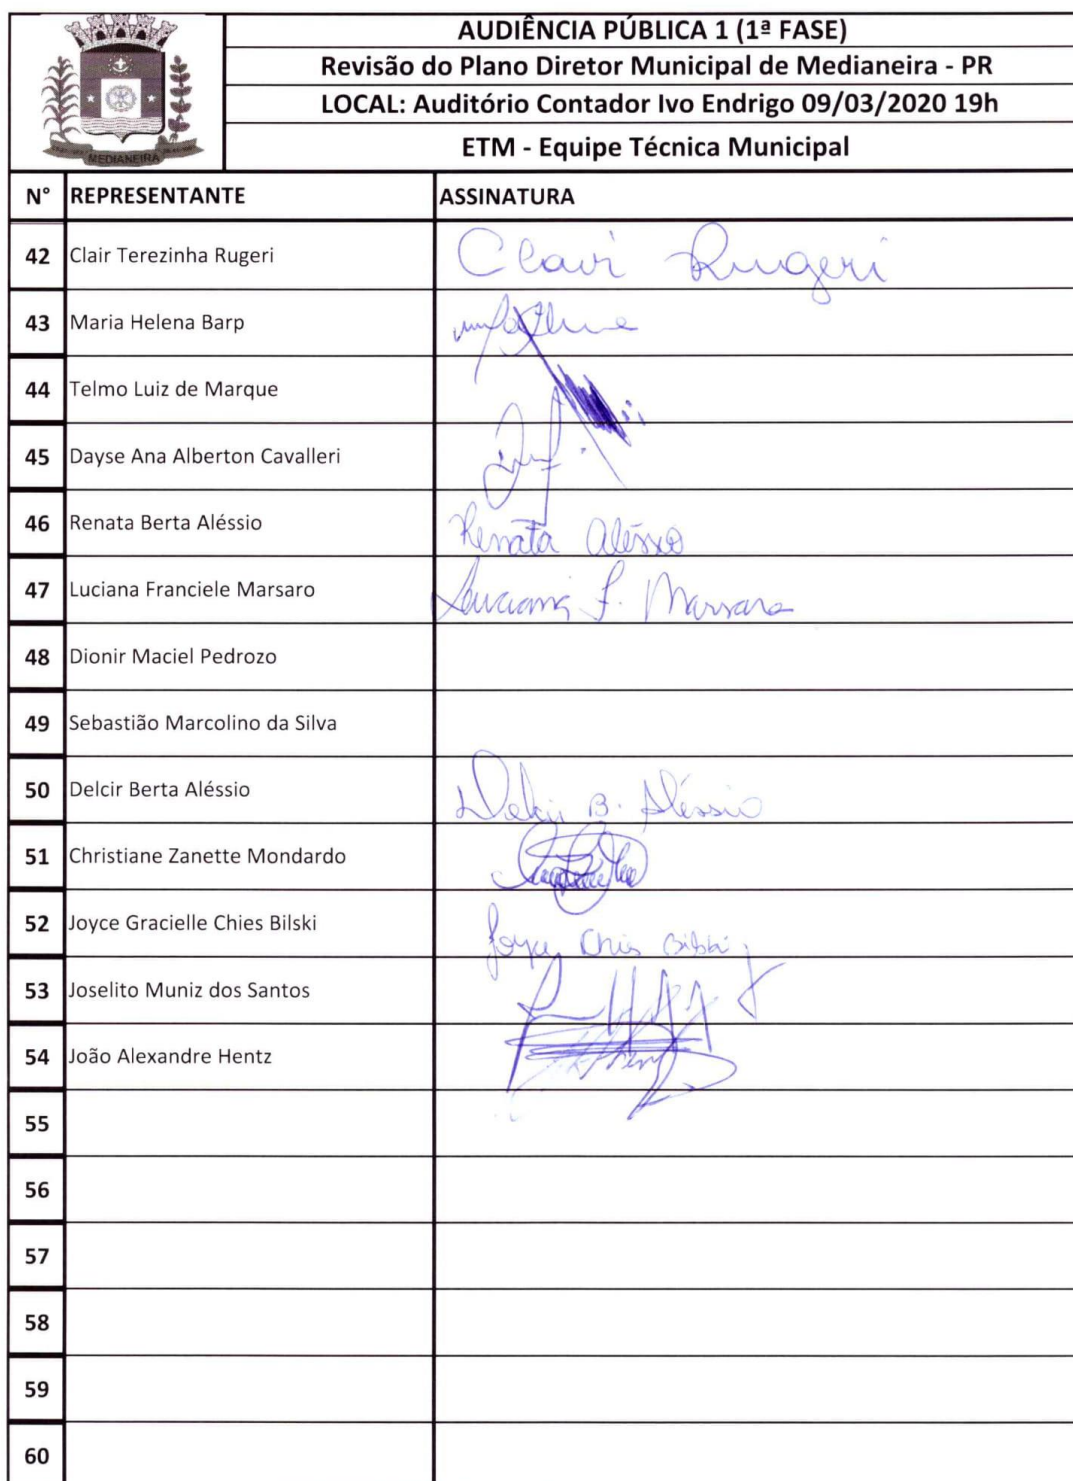 AUDIÊNCIA PÚBLICA 1 (1ª FASE)
Revisão do Plano Diretor Municipal de Medianeira - PR
LOCAL: Auditório Contador Ivo Endrigo 09/03/2020 19h
ETM - Equipe Técnica Municipal
MEDIANEIRA
N° REPRESENTANTE ASSINATURA
42 Clair Terezinha Rugeri Clair Rugeri
43 Maria Helena Barp
44 Telmo Luiz de Marque
45 Dayse Ana Alberton Cavalleri
46 Renata Berta Aléssio Renata Aléssio
47 Luciana Franciele Marsaro Luciana F. Marsaro
48 Dionir Maciel Pedrozo
49 Sebastião Marcolino da Silva
50 Delcir Berta Aléssio Delcir B. Aléssio
51 Christiane Zanette Mondardo
52 Joyce Gracielle Chies Bilski Joyce Chies Bilski
53 Joselito Muniz dos Santos
54 João Alexandre Hentz
55
56
57
58
59
60